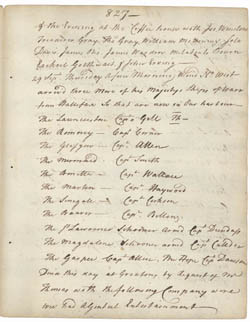 827
of the Evening at the Coffee house with Jos Winslow
Treasurer Gray, The Gray William McMurray, Sole
James the James
Ezekiel Goldthwait & John Erving
29 Sep. Thursday a fair Morning Wind N West
arrived three More of his Majestys Ships of Warr
from Halifax So that are now in Our harbour
The Launceston Capt Gell
The Romney Capt Corner
The Glasgow Capt Allen
The Mermaid Capt Smith
The Bonetta Capt Wallace
The Marten Capt Haywood
The Senegall Capt Cookson
The Beaver Capt Bellew
The St Lawrence Schooner armd Capt Dundass
The Magdalen Schooner armd Capt
The Gaspee Capt Allen Mr Hope Capt Dawson
Dind this day at Greatons by request of Mr
Thomas with the following Company were
we had a Genteel Entertainment